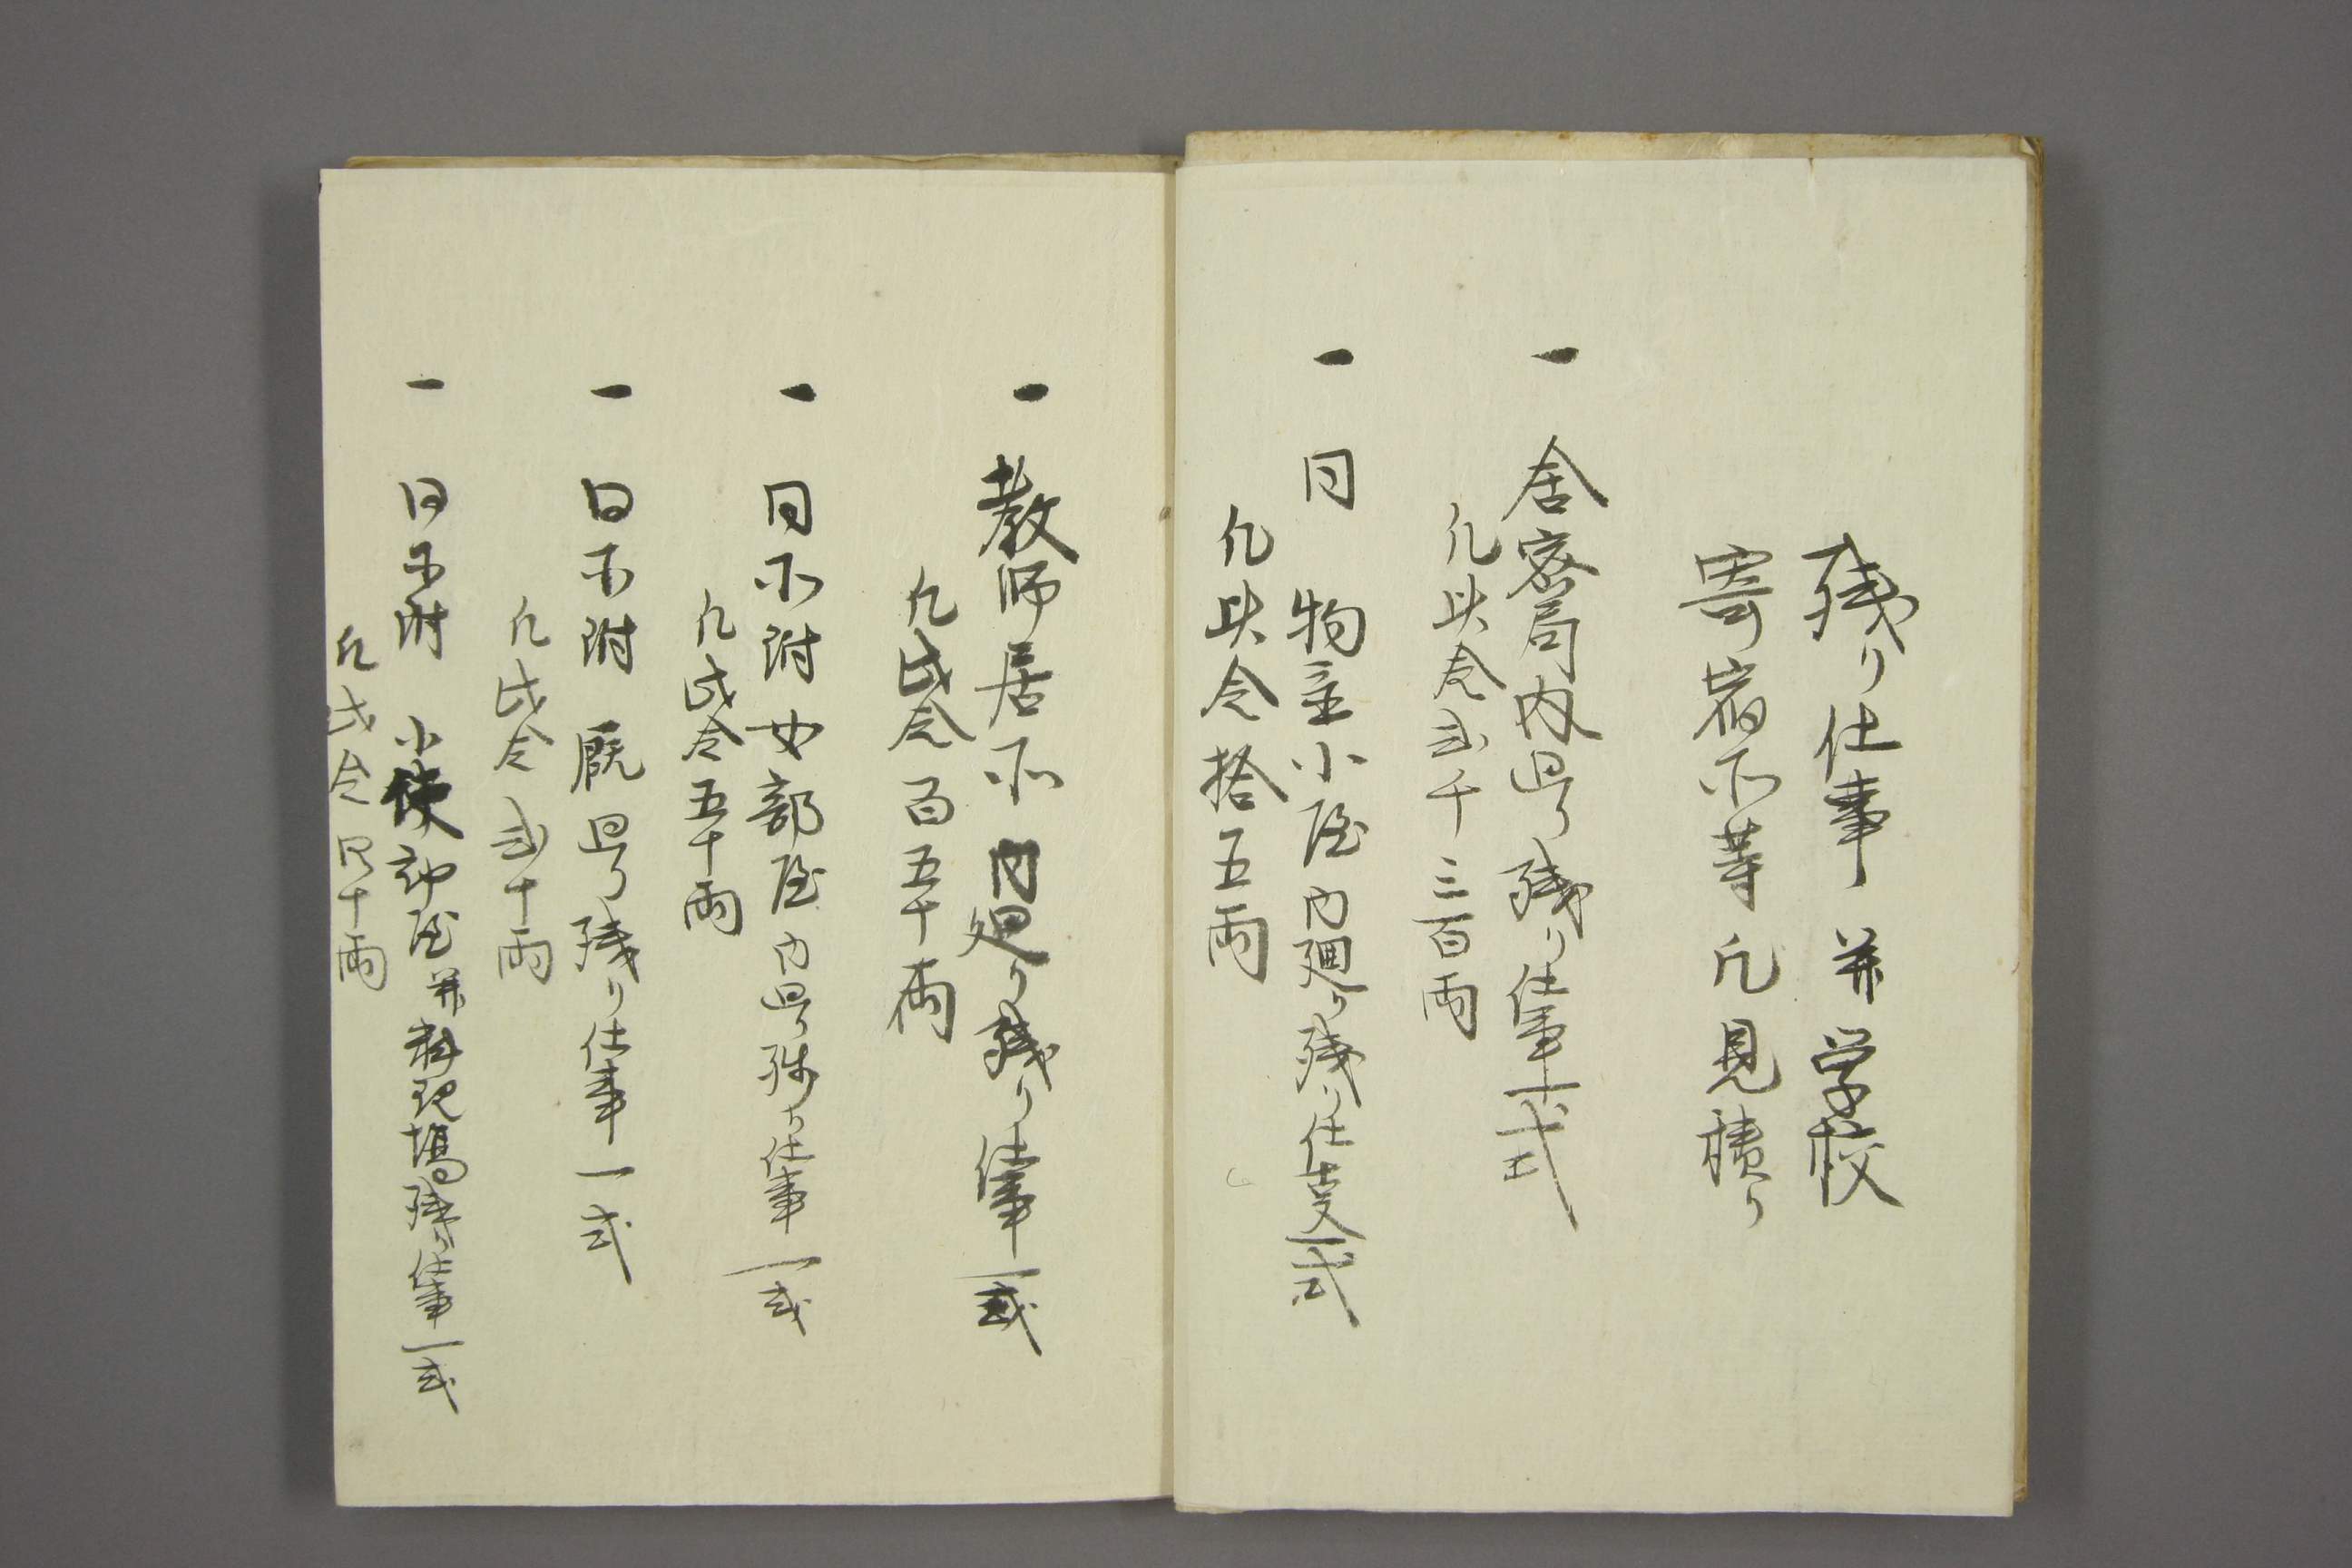 残り仕事并学校
寄宿所等凡見積り
一 舎密局内廻り残り仕事一式
凡此金弐千三百両
一 同 物置小屋内廻り残り仕事一式
凡此金拾五両
一 教師居所内廻り残り仕事一式
凡此金百五十両
一 同所附女部屋内廻り残り仕事一式
凡此金五十両
一 同所附 厩廻り残り仕事一式
凡此金弐十両
一 同所附 小使部屋并料理場残り仕事一式
凡此金四十両